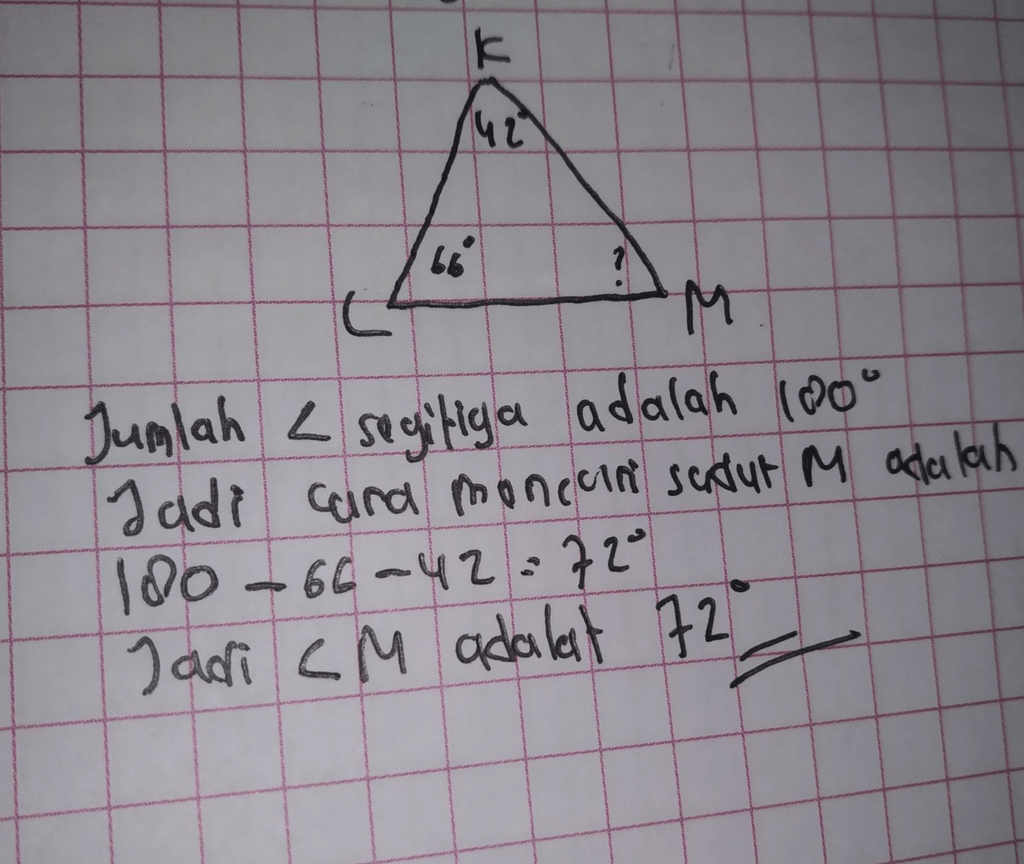 K
42°
66°
?
L
M
Jumlah < segitiga adalah 180°
Jadi cara mencari sudut M adalah
180 - 66 - 42 = 72°
Jadi < M adalah 72°